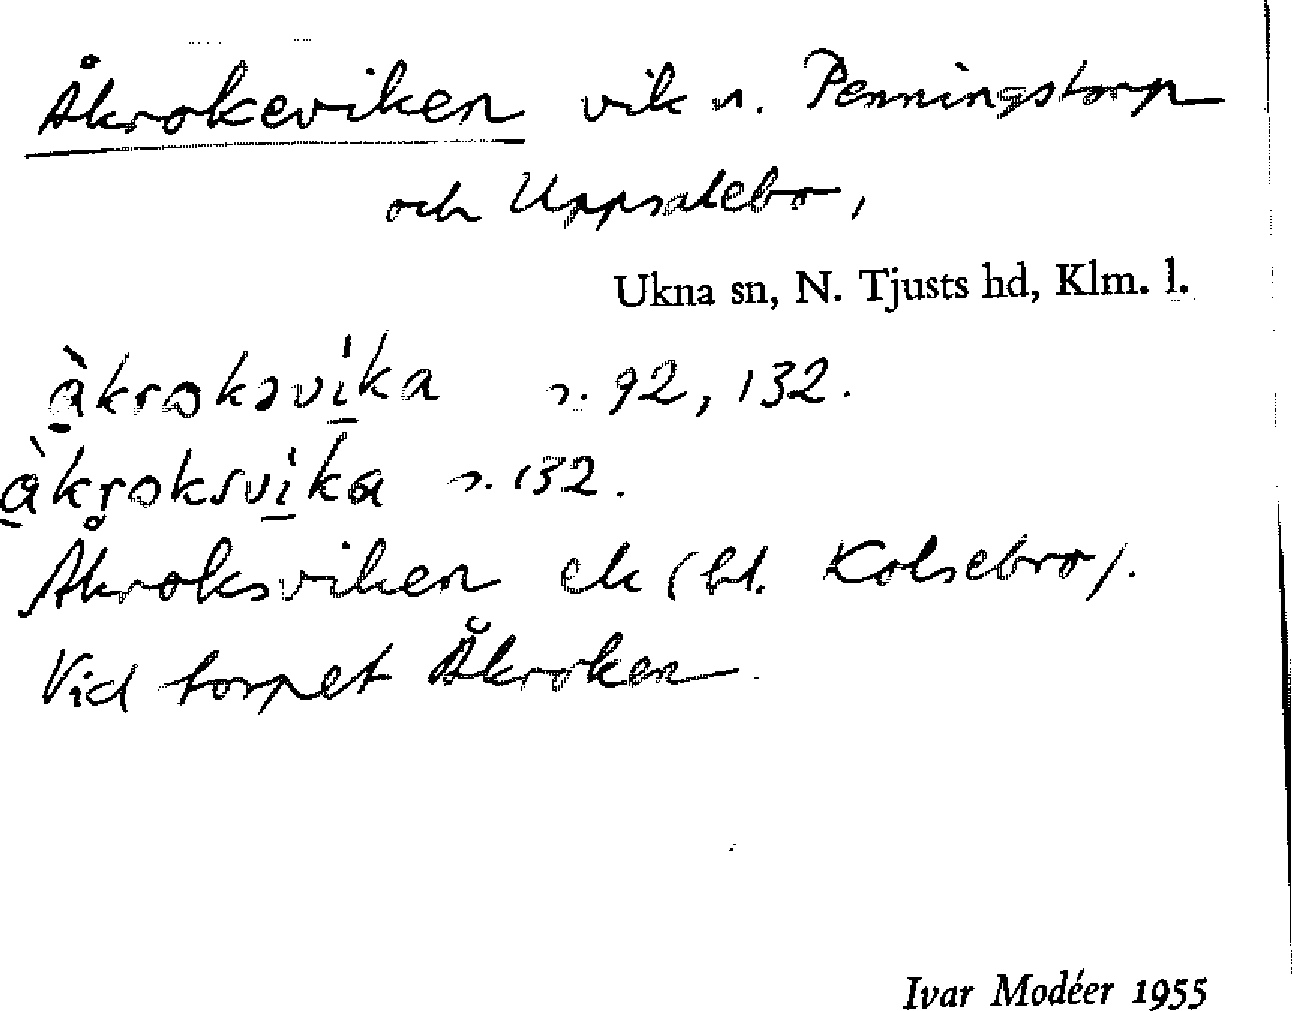 Åkrokeviken vik u. Penningstorp
och Uppsalebo,
Ukna sn, N. Tjusts hd, Klm. l.
àkrokəvi̱ka s. 92, 132.
àkr̥oksvi̱ka s. 132.
Åkroksviken ek (bl. Kolsebro).
Vid torpet Åkroken.
Ivar Modéer 1955